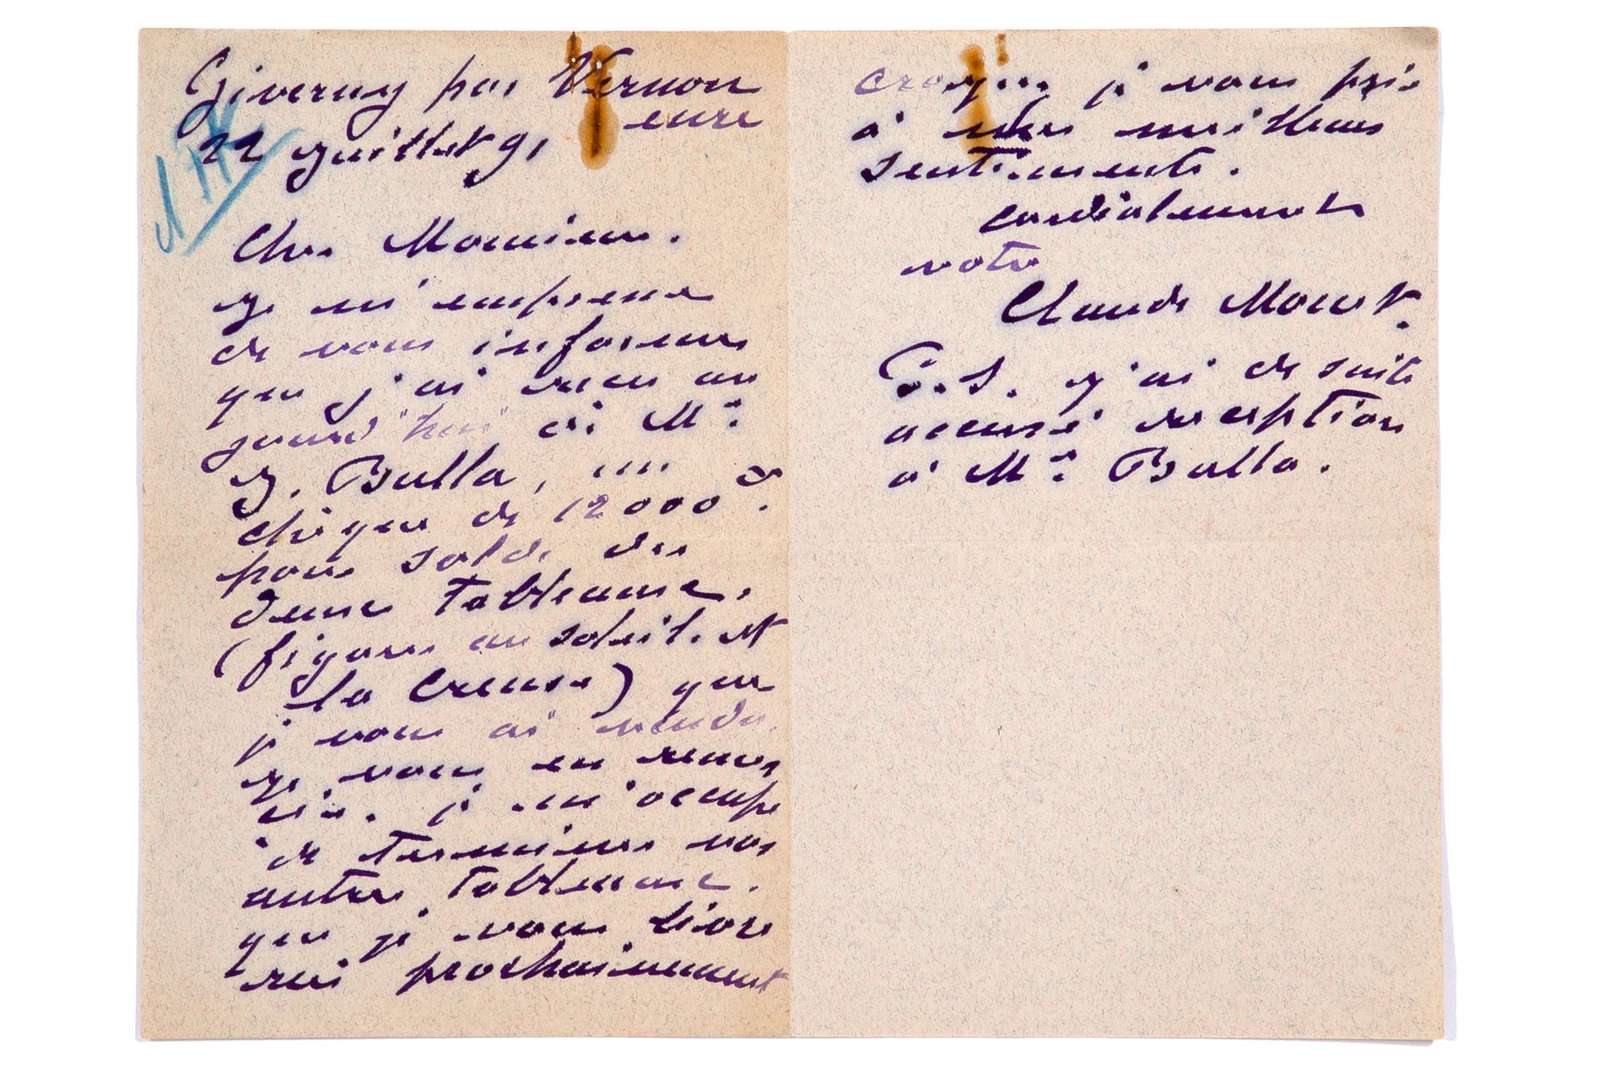 Giverny par Vernon
eure
22 juillet 91
Cher Monsieur.
Je m'empresse
de vous informer
que j'ai reçu au
jourd'hui de Mr
J. Bulla, un
chèque de 12000 f.
pour solde des
deux tableaux,
(figure au soleil. et
la Creuse) que
je vous ai vendu.
Je vous en remer
cie. je m'occupe
de terminer vos
autres tableaux.
que je vous livre
rai prochainement
croyez je vous prie
à mes meilleurs
sentiments.
cordialement
votre
Claude Monet.
P.S. J'ai de suite
accusé reception
à Mr Bulla.